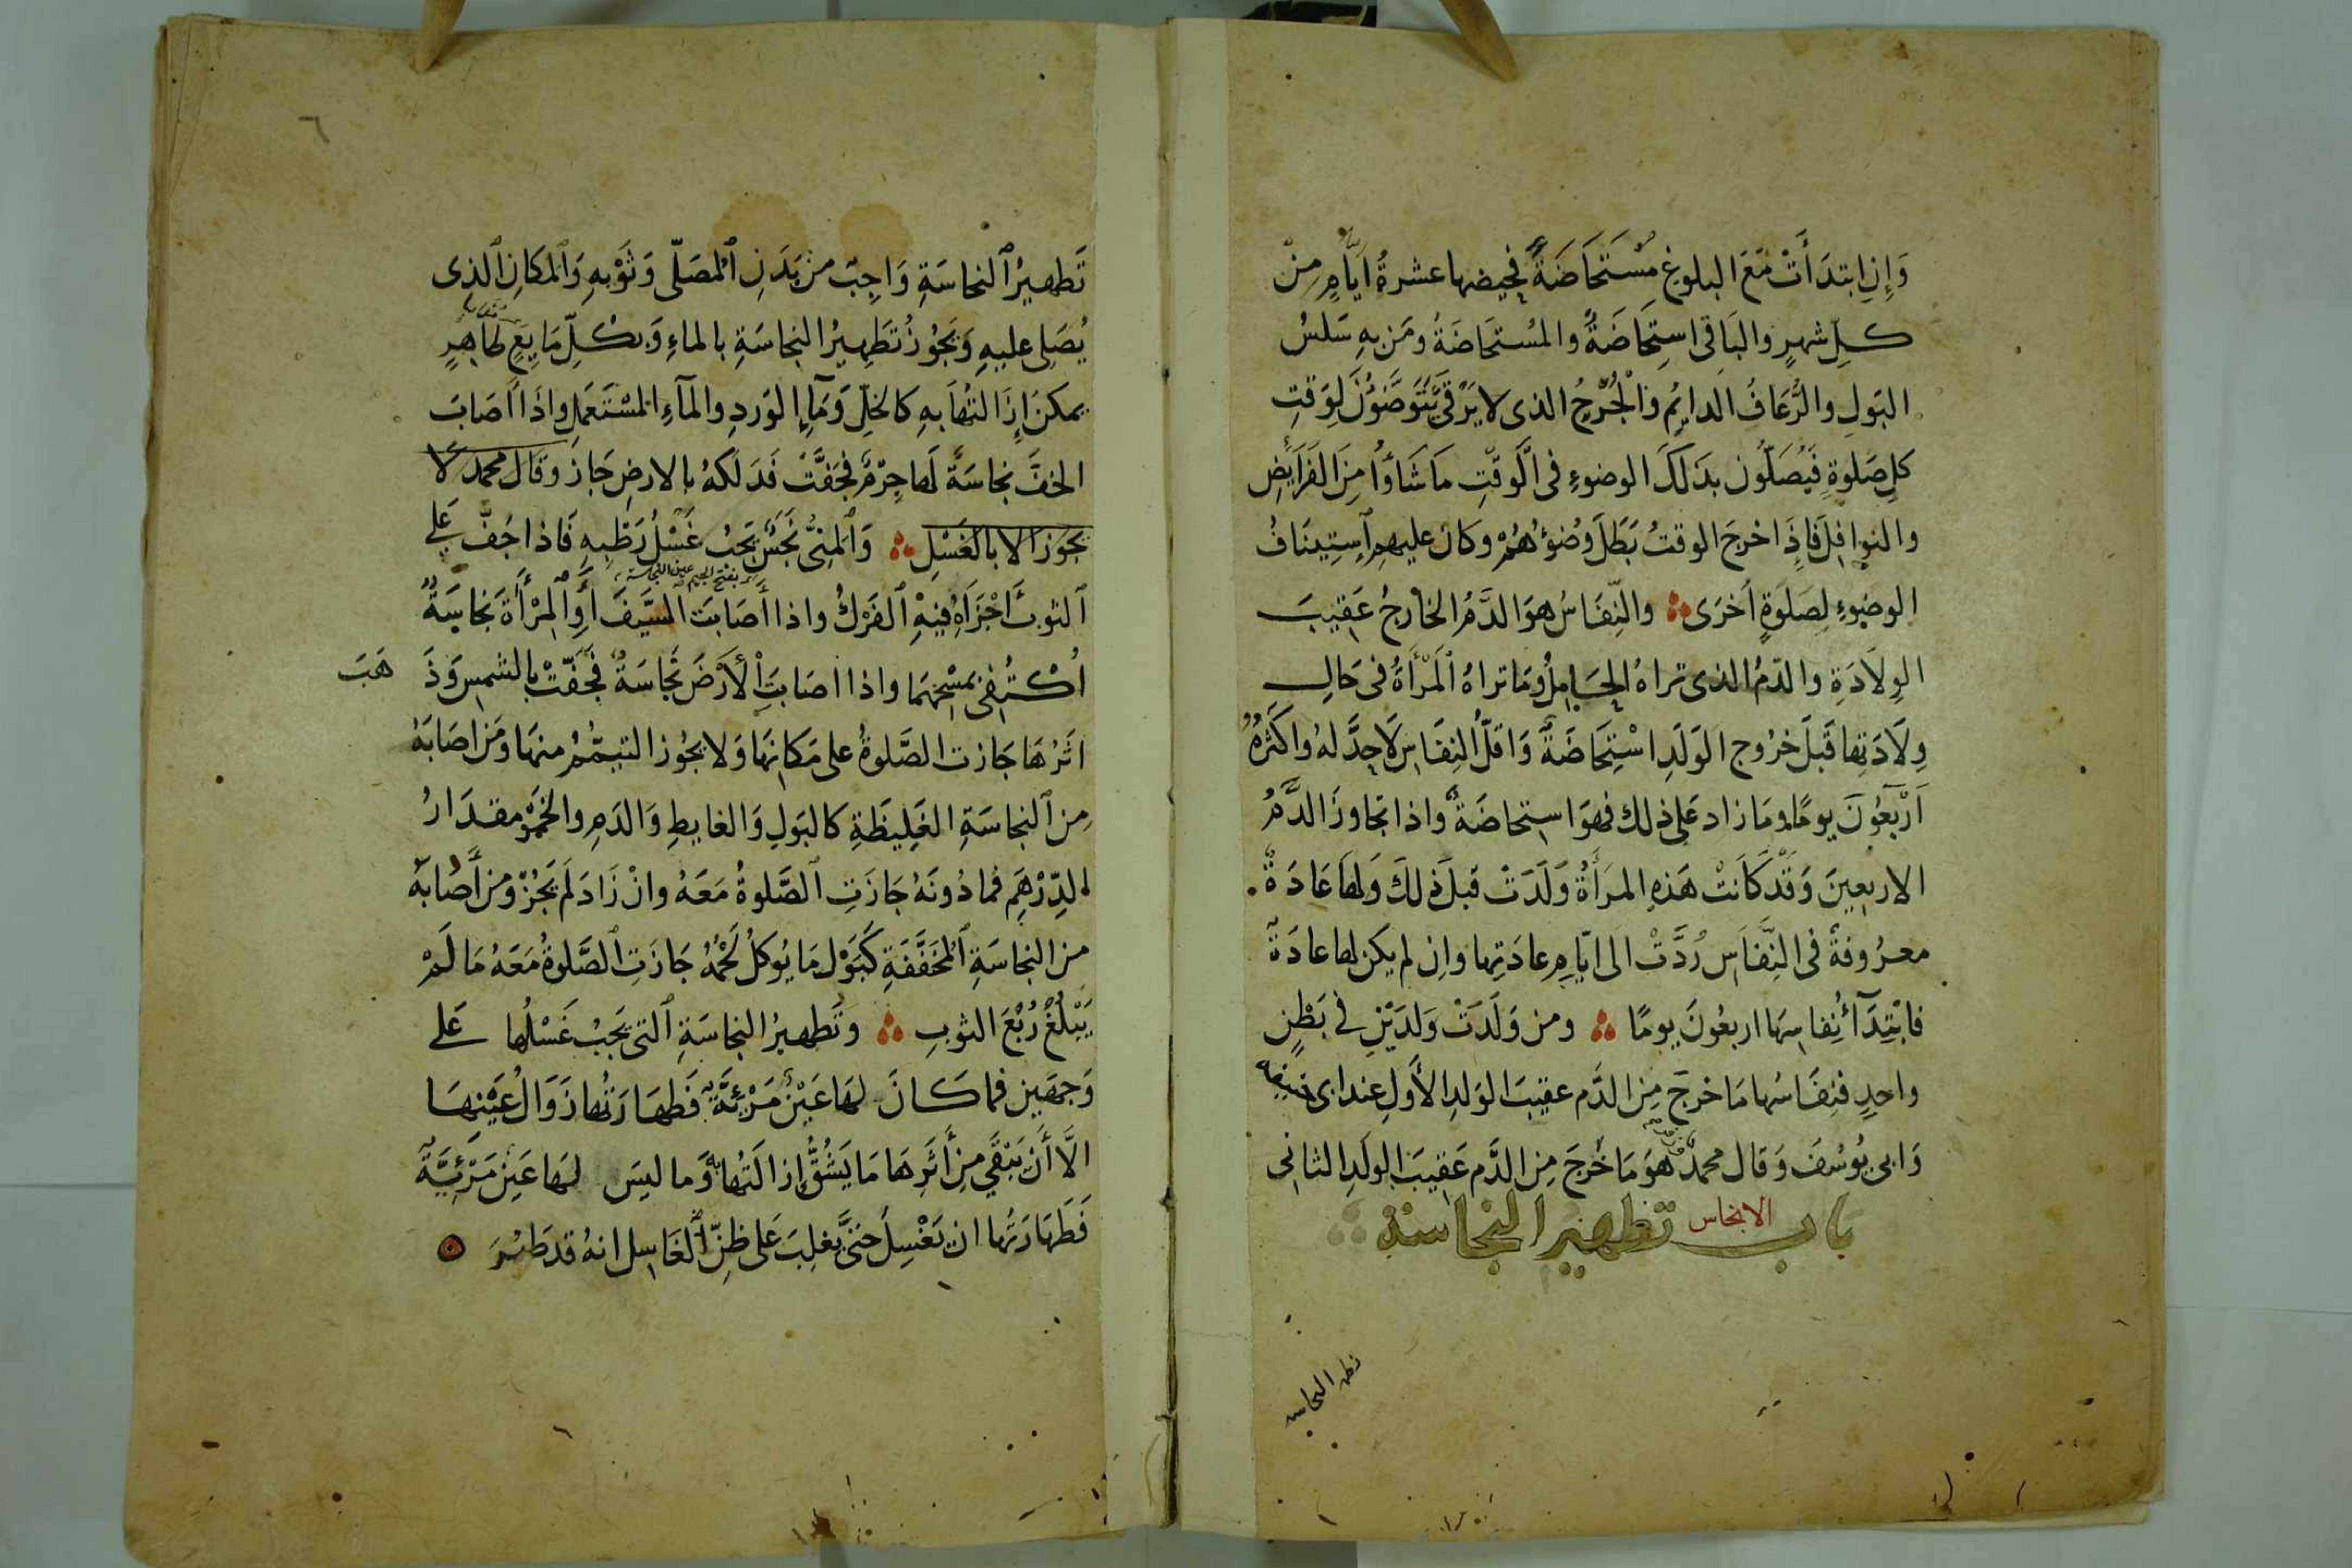 وَإِنِ ابتدَأَتْ مَعَ البلوغِ مُسْتَحَاضَةً فحيضها عشرةُ ايّامٍ مِنْ
كلِ شهرٍ والبَاقى استِحَاضَةٌ والمُستحَاضَةُ ومَن بهِ سَلسُ
البَولِ والرُّعَافُ الدايِمُ والجُرحُ الذى لا يَرْقَى يَتَوَضَّؤُنَ لِوَقتِ
كلِ صَلوةٍ فَيُصَلُّون بذَلكَ الوضوءِ فى الوَقتِ مَا شَاؤا مِنَ الفَرَايضِ
والنوافِلِ فَاِذَا خرجَ الوقتُ بَطَلَ وُضُوْهُمْ وكان عليهِم اَسِتِينَافُ
الوضوءِ لِصَلوةٍ اُخرَى والنِّفَاسُ هوَ الدَّمُ الخارجُ عَقِيبَ
الوِلاَدَةِ والدّمُ الذى تراهُ الحَامِلُ ومَا تراهُ المَرْأَةُ فى حَالِ
وِلَادَتِها قَبلَ خرُوجِ الوَلَدِ اسْتِحَاضَةٌ وَاقلُّ النِفَاسِ لَاحدَّ لهُ واكثرُهُ
اَرْبَعُونَ يومًا وما زاد عَلى ذلك فهوَ استحاضَةٌ واذا تجاوزَ الدَّمُ
الاربعينَ وَقَدْ كَانَتْ هَذهِ المرَأَةُ وَلَدَتْ قبلَ ذلكَ وَلهَا عَادَةٌ
معرُوفةٌ فى النِّفَاسِ رُدَّتْ الى ايّامِ عادَتِها وان لم يكن لها عادَةٌ
فابْتِدَآءُ نِفاسِهَا اربعُونَ يومًا ومن وَلَدَتْ وَلدَيْنِ فى بَطْنٍ
واحدٍ فنِفَاسُها مَا خرجَ مِنَ الدَّم عقيبَ الوَلدِ الأَولِ عند ابى حنيفة
وَابى يُوسُفَ وَقال محمدٌ هوَ مَا خرجَ مِنَ الدَّم عَقِيبَ الولَدِ الثانى
باب تطهير النجاسة
الانجاس
٦
تَطهيرُ النجاسَةِ وَاجِبٌ من بَدَنِ المُصَلّى وَثَوْبهِ وَالمكَانِ الذى
يُصَلى عليهِ وَيَجُوزُ تَطهِيرُ النجاسَةِ بالماءِ وَبكلِّ مَايِعٍ طَاهِرٍ
يمكنُ اِزَالتُهَا بهِ كالخلِّ وَمَآءِ الوَردِ والمآءِ المُسْتَعمَلِ واذَا أَصَابَ
الخفَّ نجاسَةٌ لَها جِرْمٌ فجَفَّتْ فَدَلَكهُ بالارضِ جَازَ وقَال محمد لَا
يجوز الا بالغَسْلِ وَالمَنِىُّ نَجَسٌ يَجبُ غَسْلُ رَطْبِهِ فَاذا جَفَّ عَلى
بفتح الجيم عين النجاسة
الثوبِ اَجْزَاَهُ فيهِ الفَرْكُ واذا أَصَابَت السَّيفَ أَوِ المِرْأَةَ نجاسَةٌ
اُكتُفِىَ بمسْحِهمَا واذا اصَابَتِ الأَرْضَ نجاسَةٌ فَجَفّتْ بالشمسِ وَذَهَبَ
اثَرُهَا جَازت الصَّلوةُ على مَكانِهَا وَلا يجُوز التيمّمُ منها ومَن اصَابَهُ
مِن النجاسَةِ الغَلِيظَةِ كالبَولِ وَالغايطِ وَالدَمِ والخَمْرِ مقدَارُ
الدِّرْهَمِ فما دُونَهُ جَازَتِ الصَّلوةُ مَعَهُ وانْ زَادَ لَم يَجُزْ ومن أَصَابَهُ
من النجاسَةِ المُخَفَّفَةِ كَبَوْلِ مَا يُوكلُ لَحْمُهُ جَازَتِ الصَّلوةُ مَعَهُ مَا لَمْ
يَبْلُغْ رُبْعَ الثوبِ وتَطهيرُ النجاسَةِ التى يَجبُ غَسْلُها عَلى
وَجهَين فما كَانَ لهَا عَيْنٌ مَرْئِيَّةٌ فَطهَارَتُها زَوَالُ عَيْنِهَا
الَّا أَن يَبْقَى مِن أَثَرِهَا مَا يَشُقُّ اِزالَتُها وَما ليسَ لهَا عَين مَرْئِيَّةٌ
فَطَهَارَتُها ان يَغْسِلَ حتىَّ يغلِبَ عَلى ظَنِّ الغَاسِلِ انهُ قد طَهُرَ